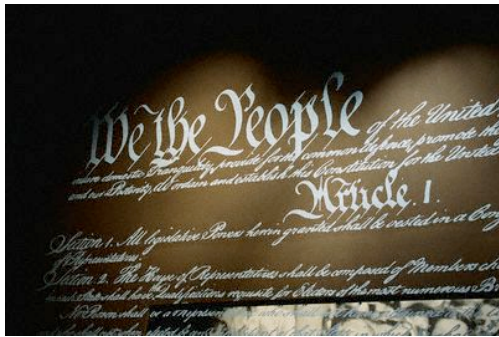 We the People of the United
insure domestic Tranquility, provide for the common defence, promote the
and our Posterity, do ordain and establish this Constitution for the United
Article. I.
Section. 1. All legislative Powers herein granted shall be vested in a Cong
of Representatives.
Section. 2. The House of Representatives shall be composed of Members ch
in each State shall have Qualifications requisite for Electors of the most numerous Br
No Person shall be a Represent